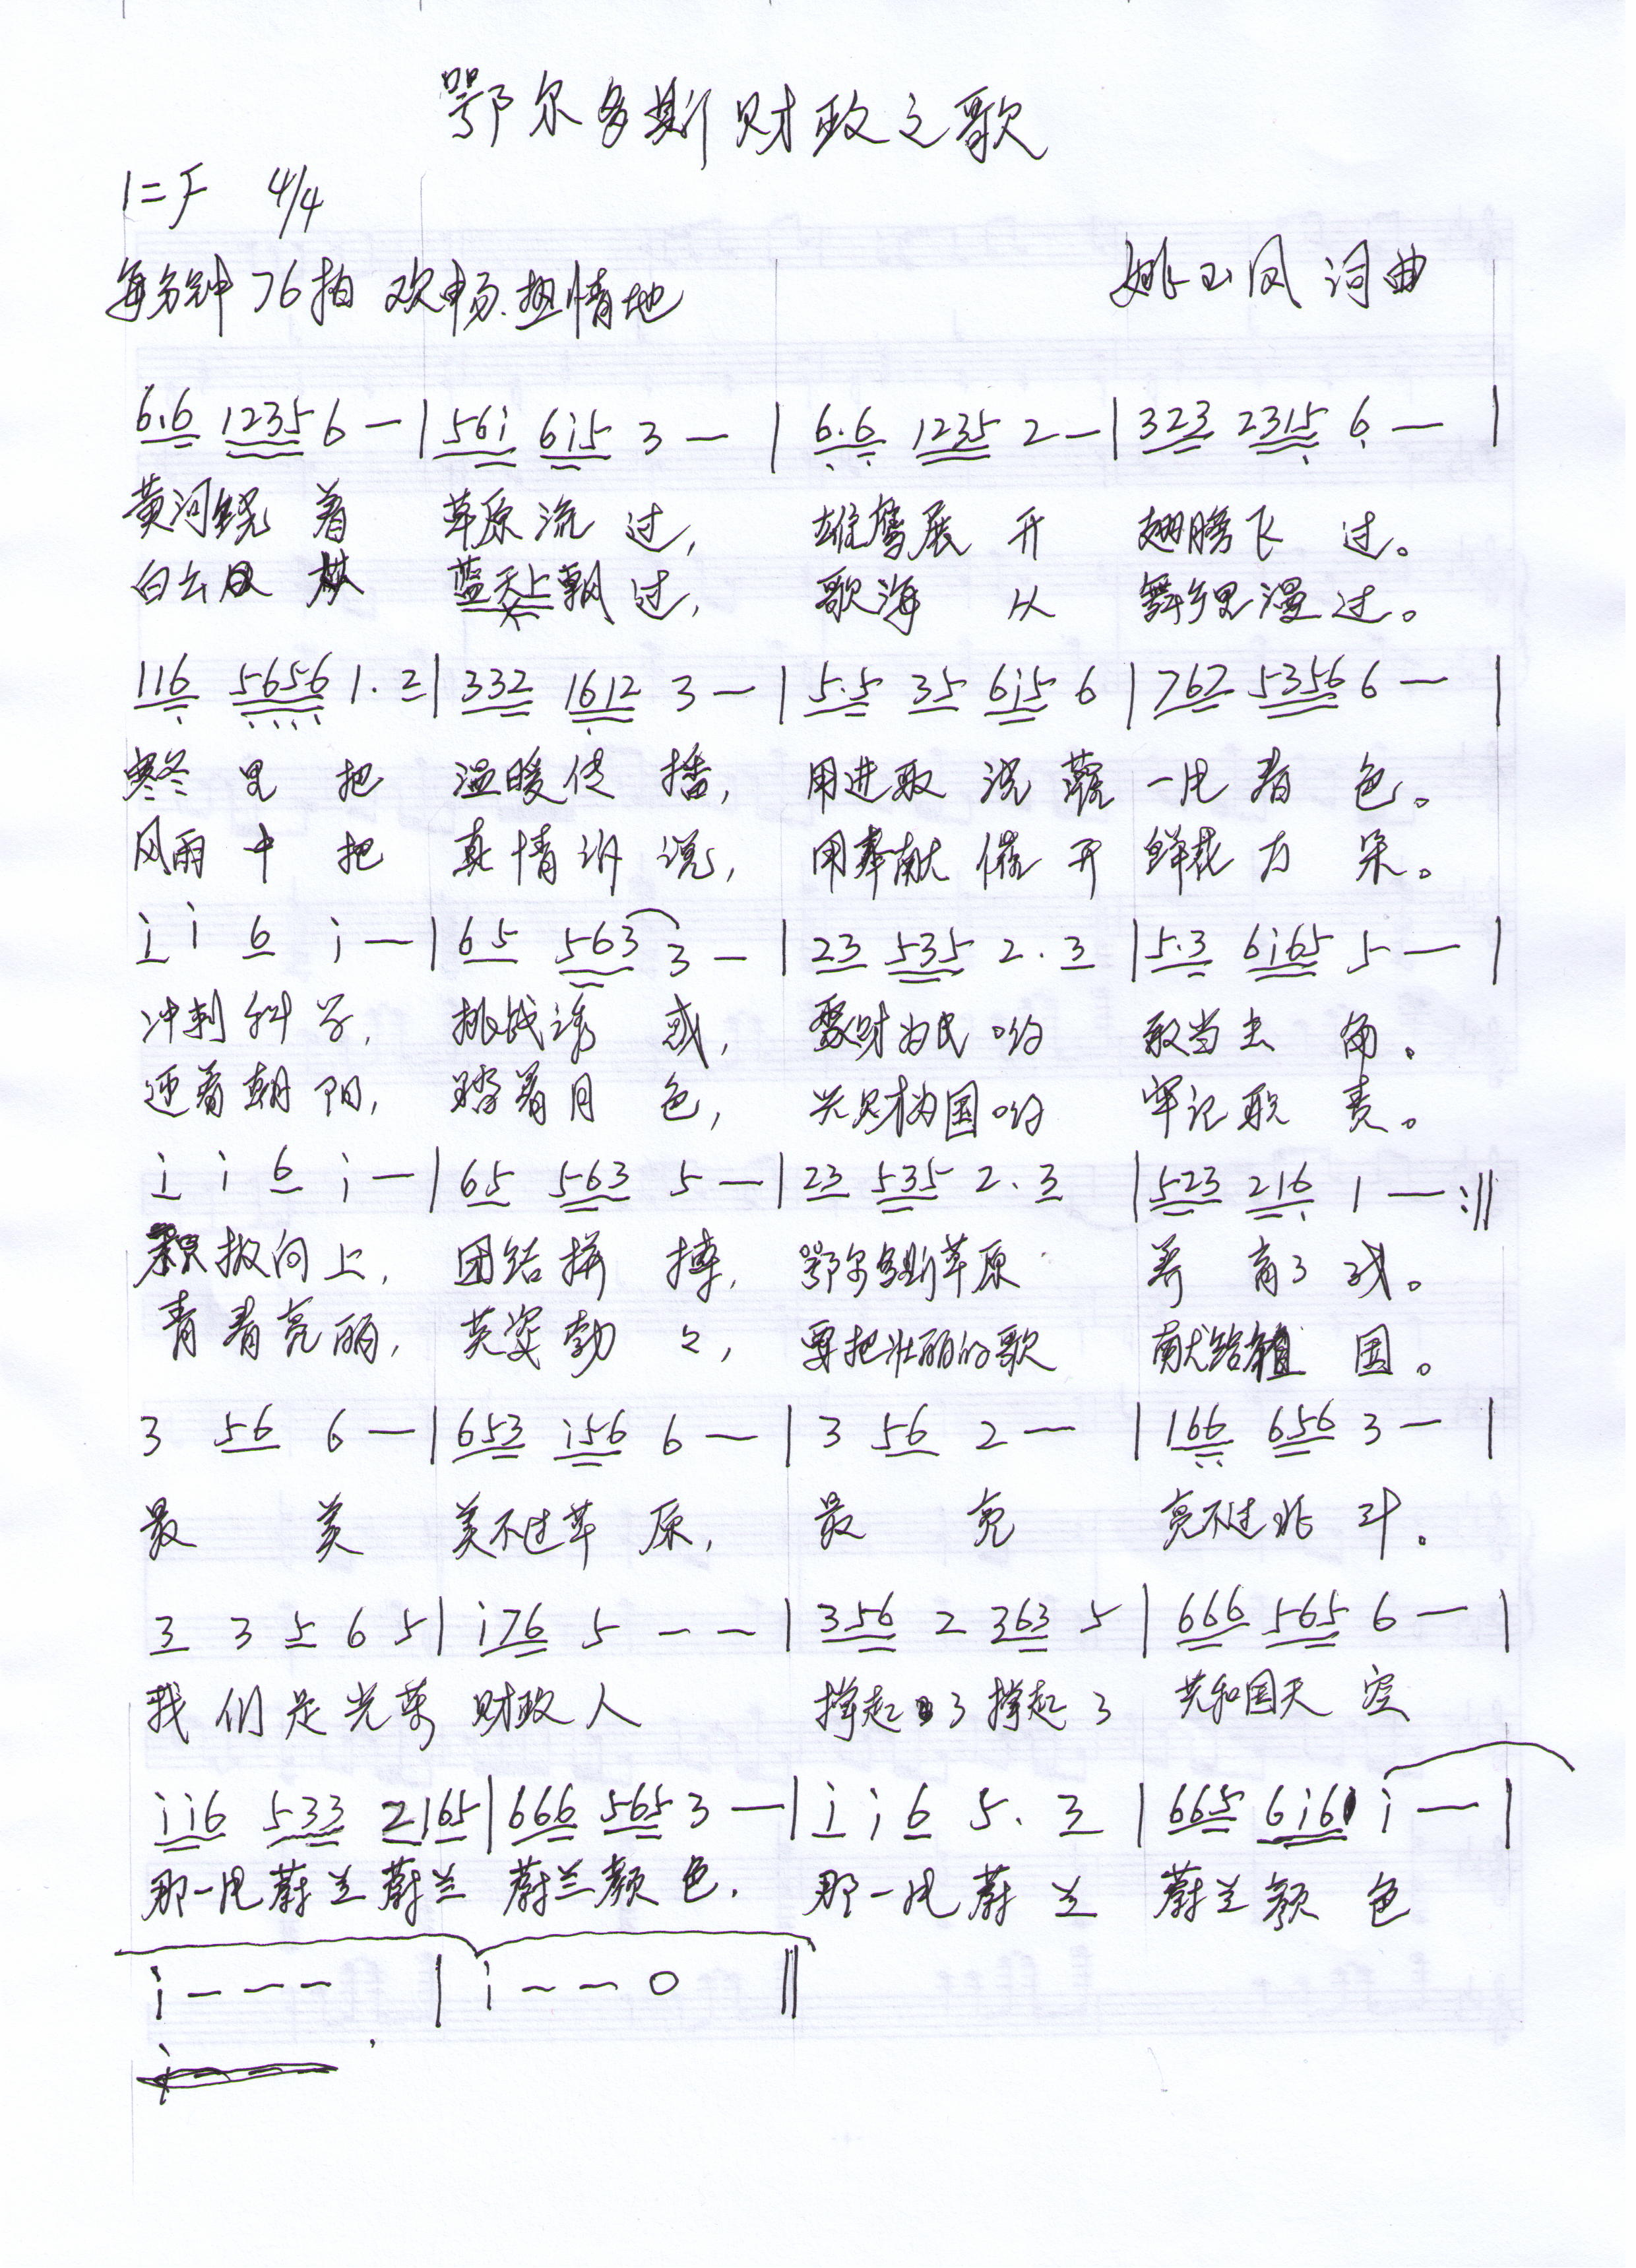 鄂尔多斯财政之歌
1=F 4/4
每分钟76拍 欢畅.热情地 姚玉凤 词曲
6.6 1235 6 — | 56i 6i5 3 — | 6.6 1235 2 — | 323 2315 6 — |
黄河绕着 草原流过, 雄鹰展开 翅膀飞过。
白云从 蓝天上飘过, 歌海从 舞乡里漫过。
116 5656 1. 2 | 332 1612 3 — | 5.5 35 6i5 6 | 767 5356 6 — |
寒冬里把 温暖传播, 用进取浇灌 一片春色。
风雨中把 真情诉说, 用奉献催开 鲜花万朵。
i i 6 i — | 65 563 3 — | 23 535 2. 3 | 5.3 6i65 5 — |
冲刺科学, 挑战诱惑, 聚财为民哟 敢当主角。
迎着朝阳, 踏着月色, 兴财为国哟 牢记职责。
i i 6 i — | 65 563 5 — | 23 535 2. 3 | 523 216 1 — :||
积极向上, 团结拼搏, 鄂尔多斯草原 养育了我。
青春亮丽, 英姿勃々, 要把壮丽的歌 献给祖国。
3 56 6 — | 653 i56 6 — | 3 56 2 — | 166 656 3 — |
最美 美不过草原, 最亮 亮不过北斗。
3 3 5 6 5 | i76 5 — — | 356 2 363 5 | 666 565 6 — |
我们是光荣 财政人 撑起了撑起了 共和国天空
ii6 533 2165 | 666 565 3 — | i i 6 5. 3 | 665 6i6 i — |
那一片蔚兰蔚兰 蔚兰颜色. 那一片蔚兰 蔚兰颜色
i — — — | i — — 0 ||